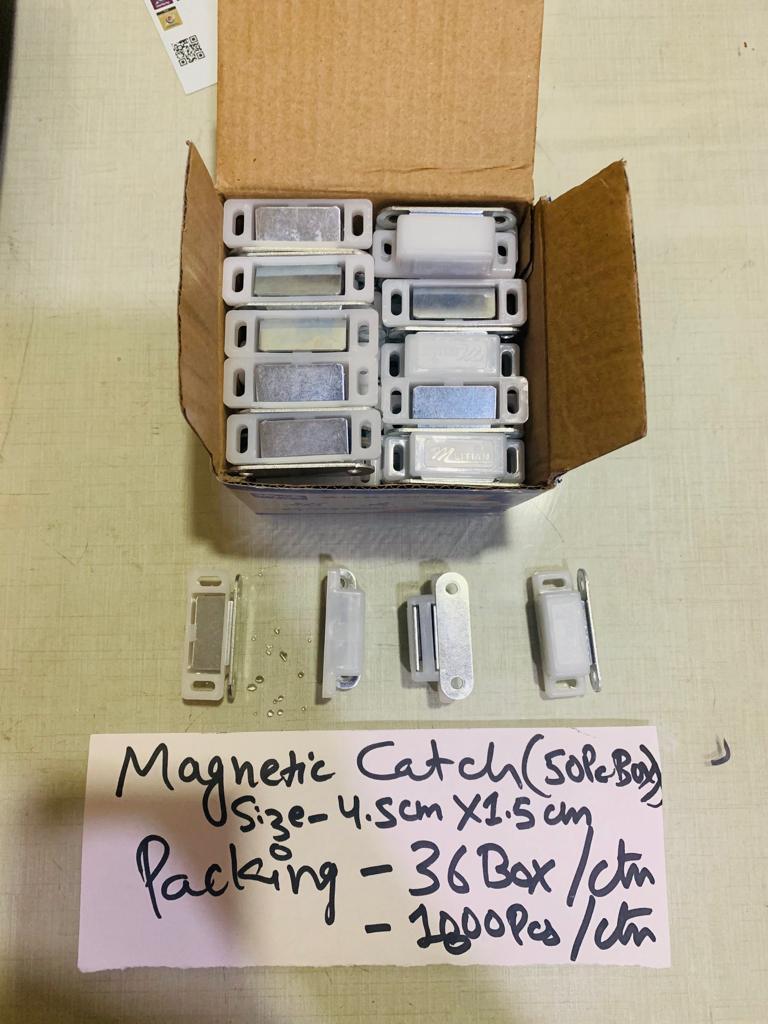 MEITIAN
Magnetic Catch (50Pc Box)
Size - 4.5cm X 1.5 cm
Packing - 36 Box /ctn
- 1800 Pcs /ctn